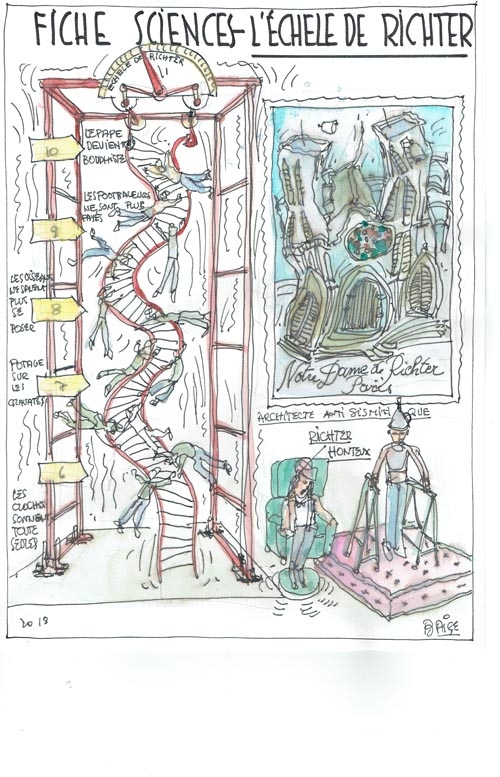 FICHE SCIENCES-L'ÉCHELE DE RICHTER
ECHELE DE RICHTER
10
LE PAPE
DEVIENT
BOUDHISTE
LES FOOTBALEURS
NE SONT PLUS
PAYÉS
9
LES OISEAUX
NE SAVENT
PLUS
SE
POSER
8
POTAGE
SUR
LES
CRAVATES
7
6
LES
CLOCHES
SONNENT
TOUTE
SEULES
Notre Dame de Richter
Paris
ARCHITECTE ANTI SISMITIQUE
RICHTER
HONTEUX
2018
PAIGE